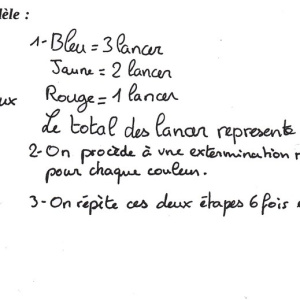 èle :
1-Bleu = 3 lancer
Jaune = 2 lancer
ux
Rouge = 1 lancer
Le total des lancer represente
2-On procède à une extermination
pour chaque couleur.
3-On répète ces deux étapes 6 fois